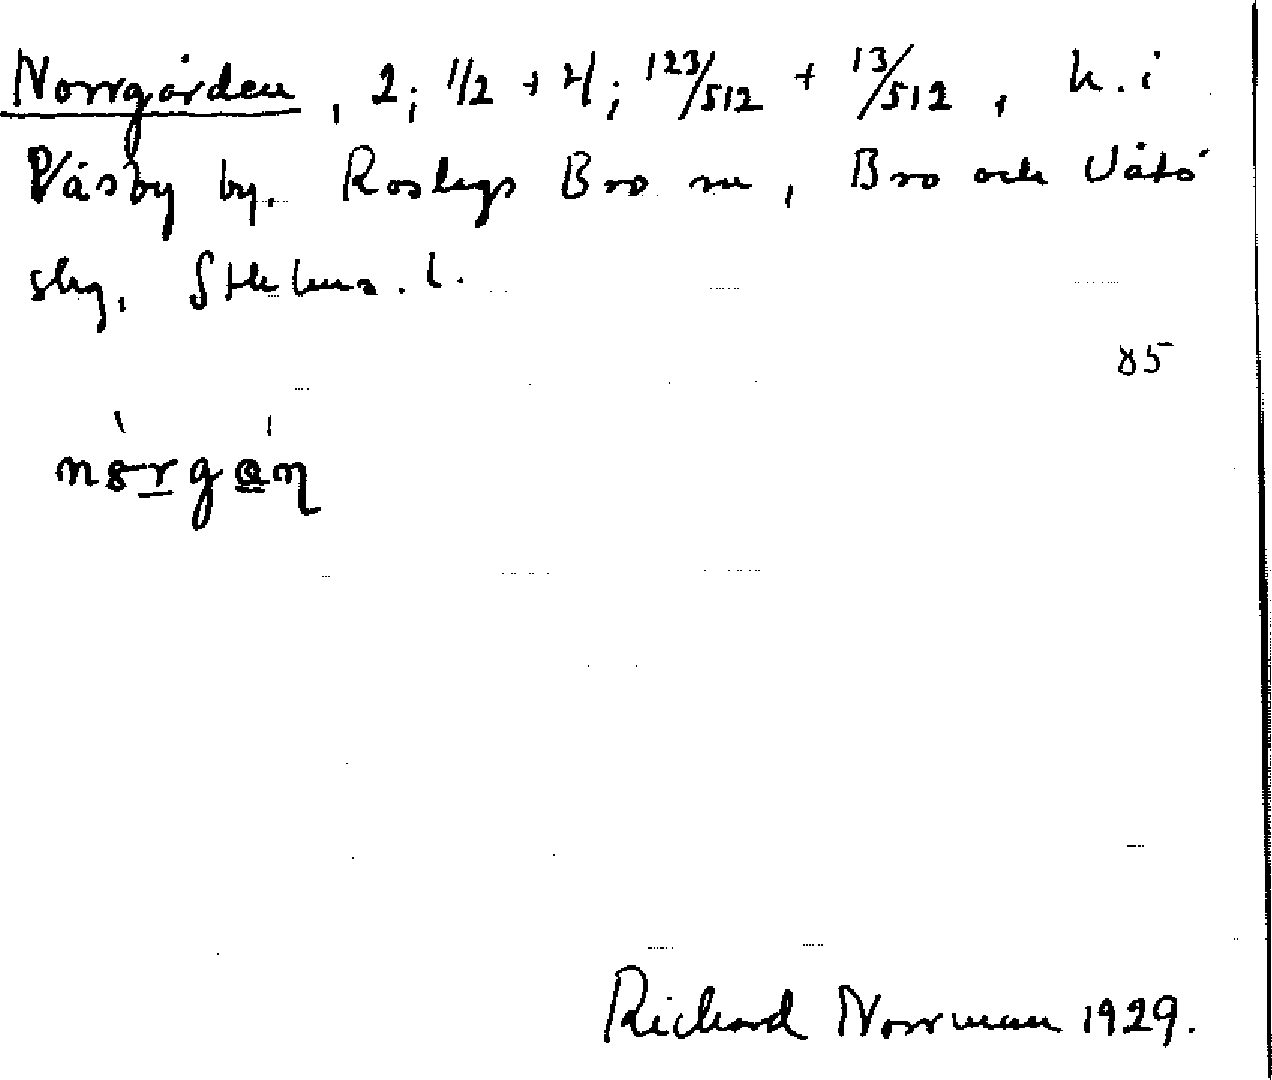 Norrgården, 2; 1/2 + 4; 123/512 + 13/512, h. i
Väsby by. Roslags Bro sn, Bro och Vätö
skg, Sthlms. l.
85
Richard Norrman 1929.